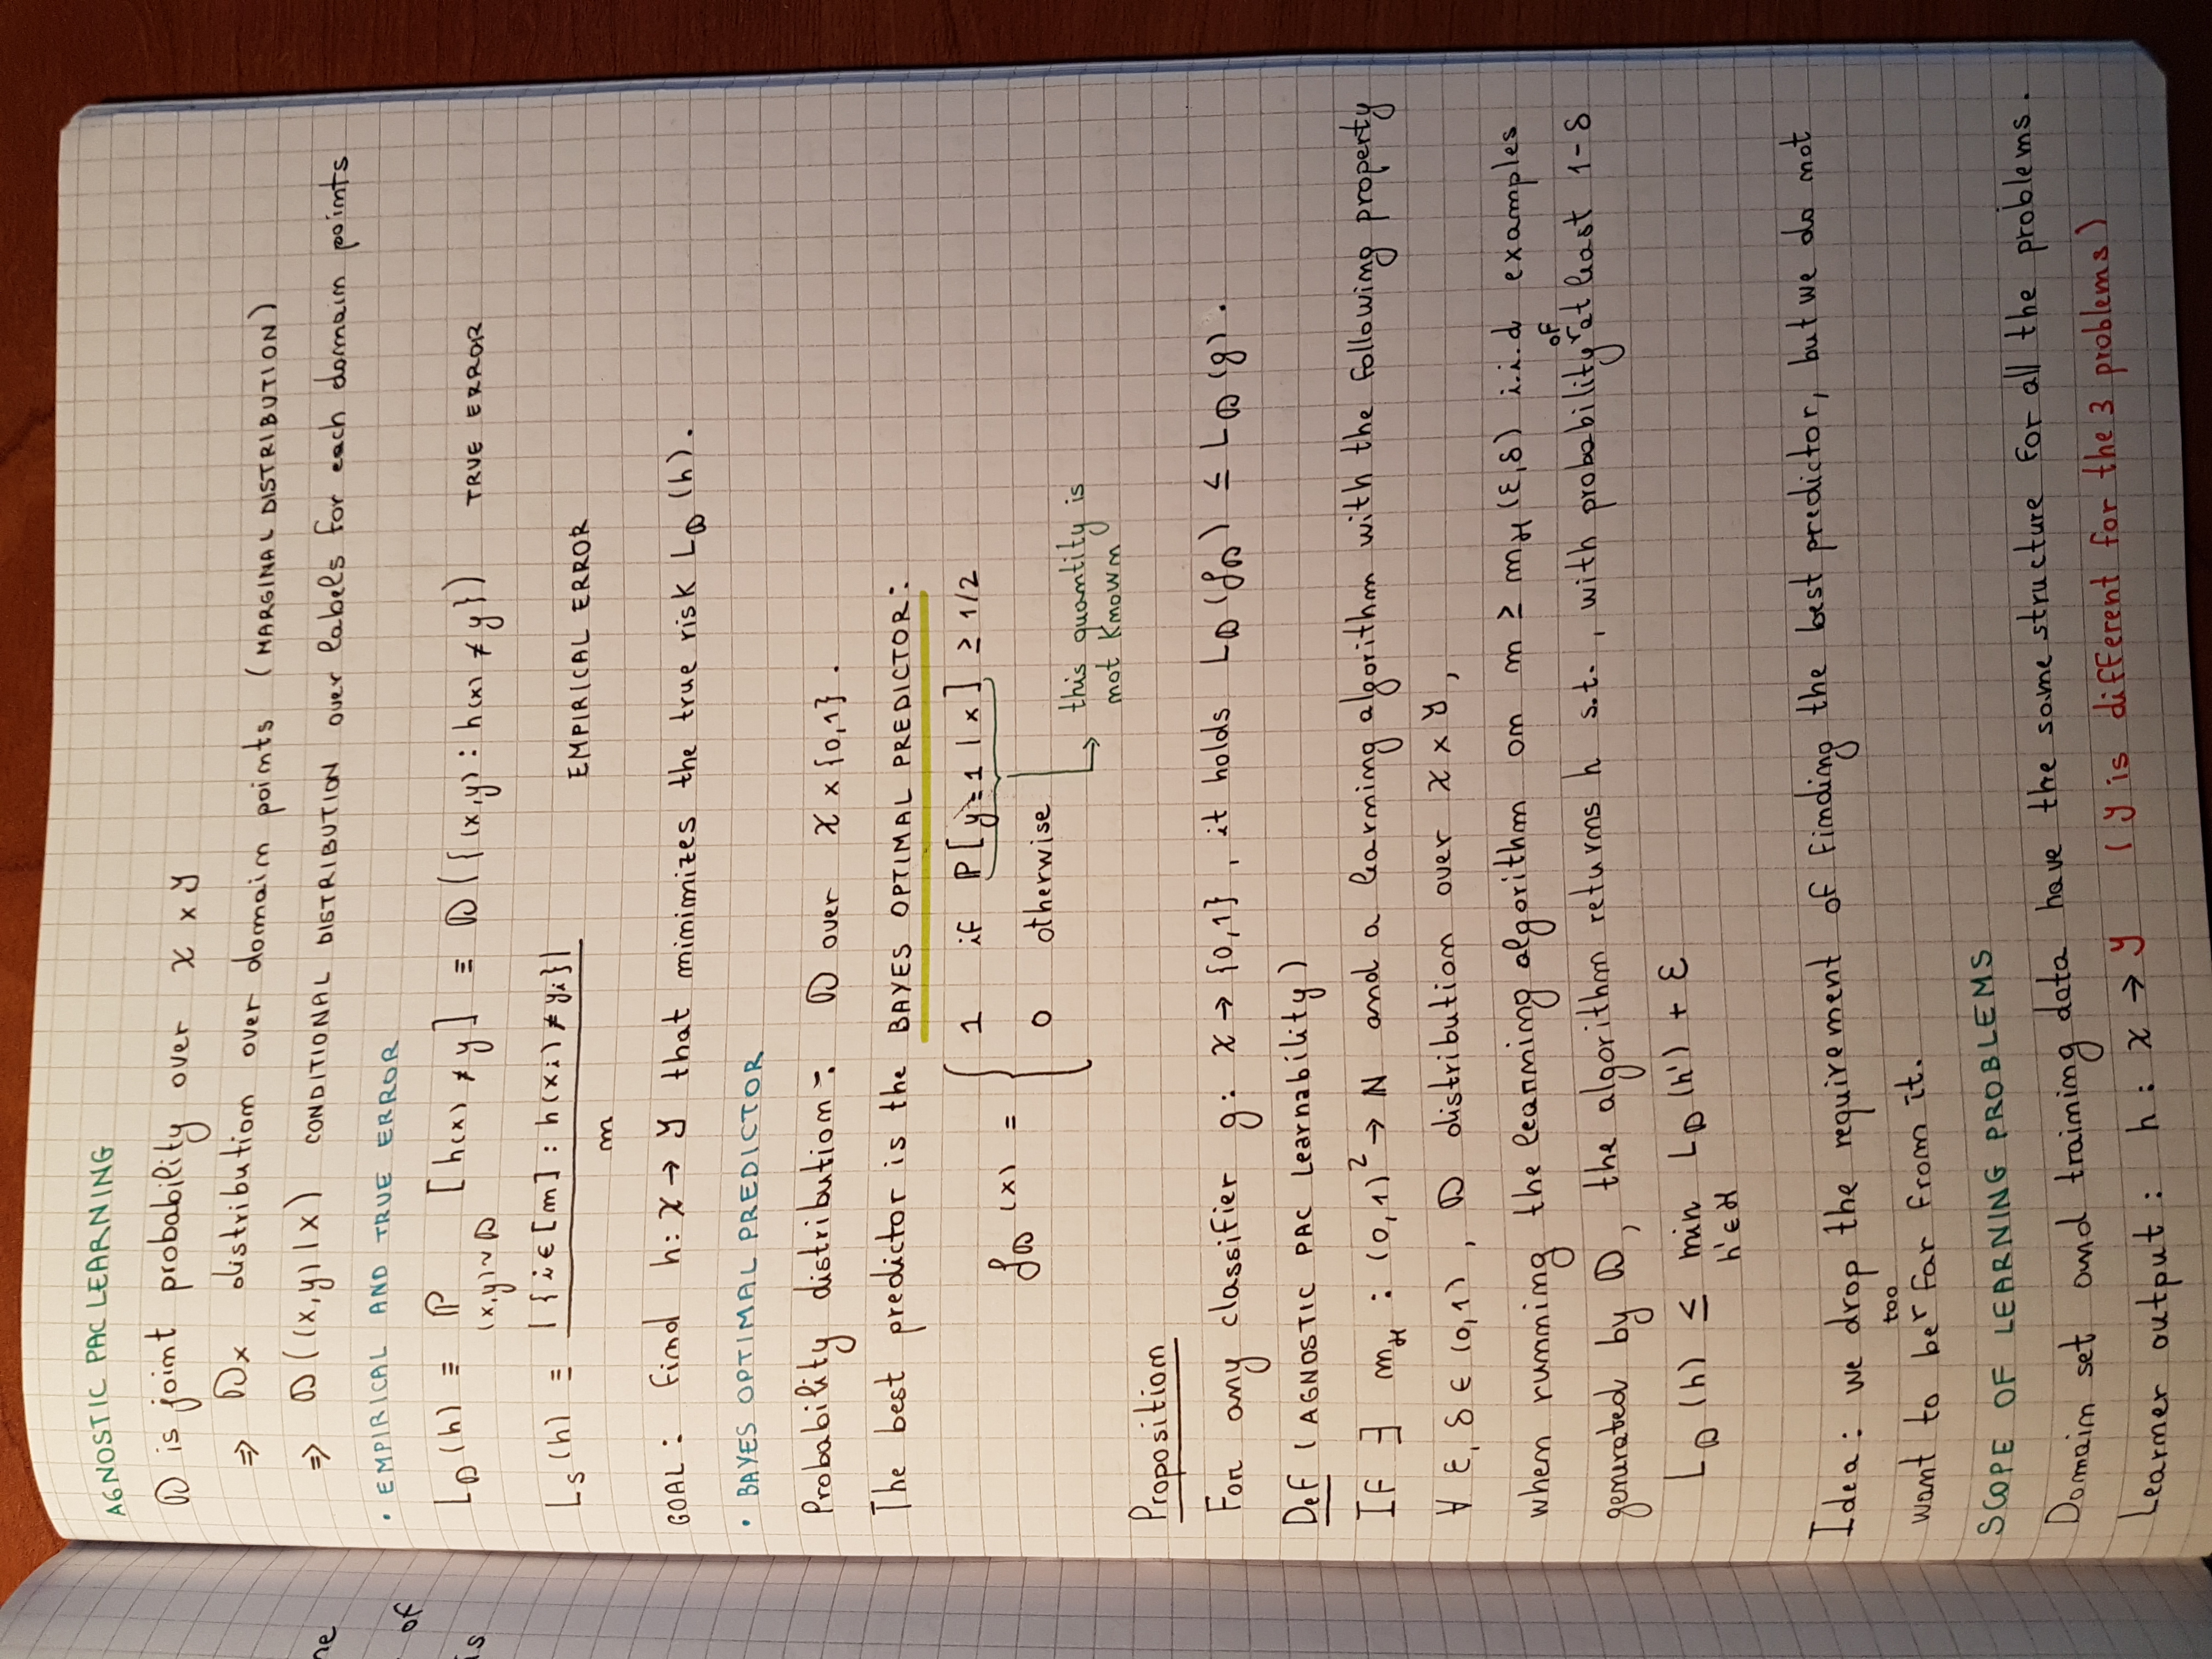 AGNOSTIC PAC LEARNING
𝒟 is joint probability over 𝒳 × 𝒴
⇒ 𝒟x distribution over domain points (MARGINAL DISTRIBUTION)
⇒ 𝒟((x,y)|x) CONDITIONAL DISTRIBUTION over labels for each domain points
• EMPIRICAL AND TRUE ERROR
L𝒟(h) ≡ ℙ [h(x) ≠ y] ≡ 𝒟({(x,y) : h(x) ≠ y}) TRUE ERROR
(x,y)~𝒟
Ls(h) ≡ |{i ∈ [m] : h(xi) ≠ yi}| EMPIRICAL ERROR
m
GOAL: find h: 𝒳 → 𝒴 that minimizes the true risk L𝒟(h).
• BAYES OPTIMAL PREDICTOR
Probability distribution: 𝒟 over 𝒳 × {0,1}.
The best predictor is the BAYES OPTIMAL PREDICTOR:
f𝒟(x) = { 1 if ℙ[y=1 | x] ≥ 1/2
0 otherwise
this quantity is
not known
Proposition
For any classifier g: 𝒳 → {0,1}, it holds L𝒟(f𝒟) ≤ L𝒟(g).
Def (AGNOSTIC PAC Learnability)
If ∃ mℋ : (0,1)² → ℕ and a learning algorithm with the following property
∀ ε, δ ∈ (0,1), 𝒟 distribution over 𝒳 × 𝒴,
when running the learning algorithm on m ≥ mℋ(ε,δ) i.i.d examples
generated by 𝒟, the algorithm returns h s.t., with probability of at least 1-δ
L𝒟(h) ≤ min L𝒟(h') + ε
h'∈ℋ
Idea: we drop the requirement of finding the best predictor, but we do not
want to be too far from it.
SCOPE OF LEARNING PROBLEMS
Domain set and training data have the same structure for all the problems.
Learner output: h: 𝒳 → 𝒴 (𝒴 is different for the 3 problems)